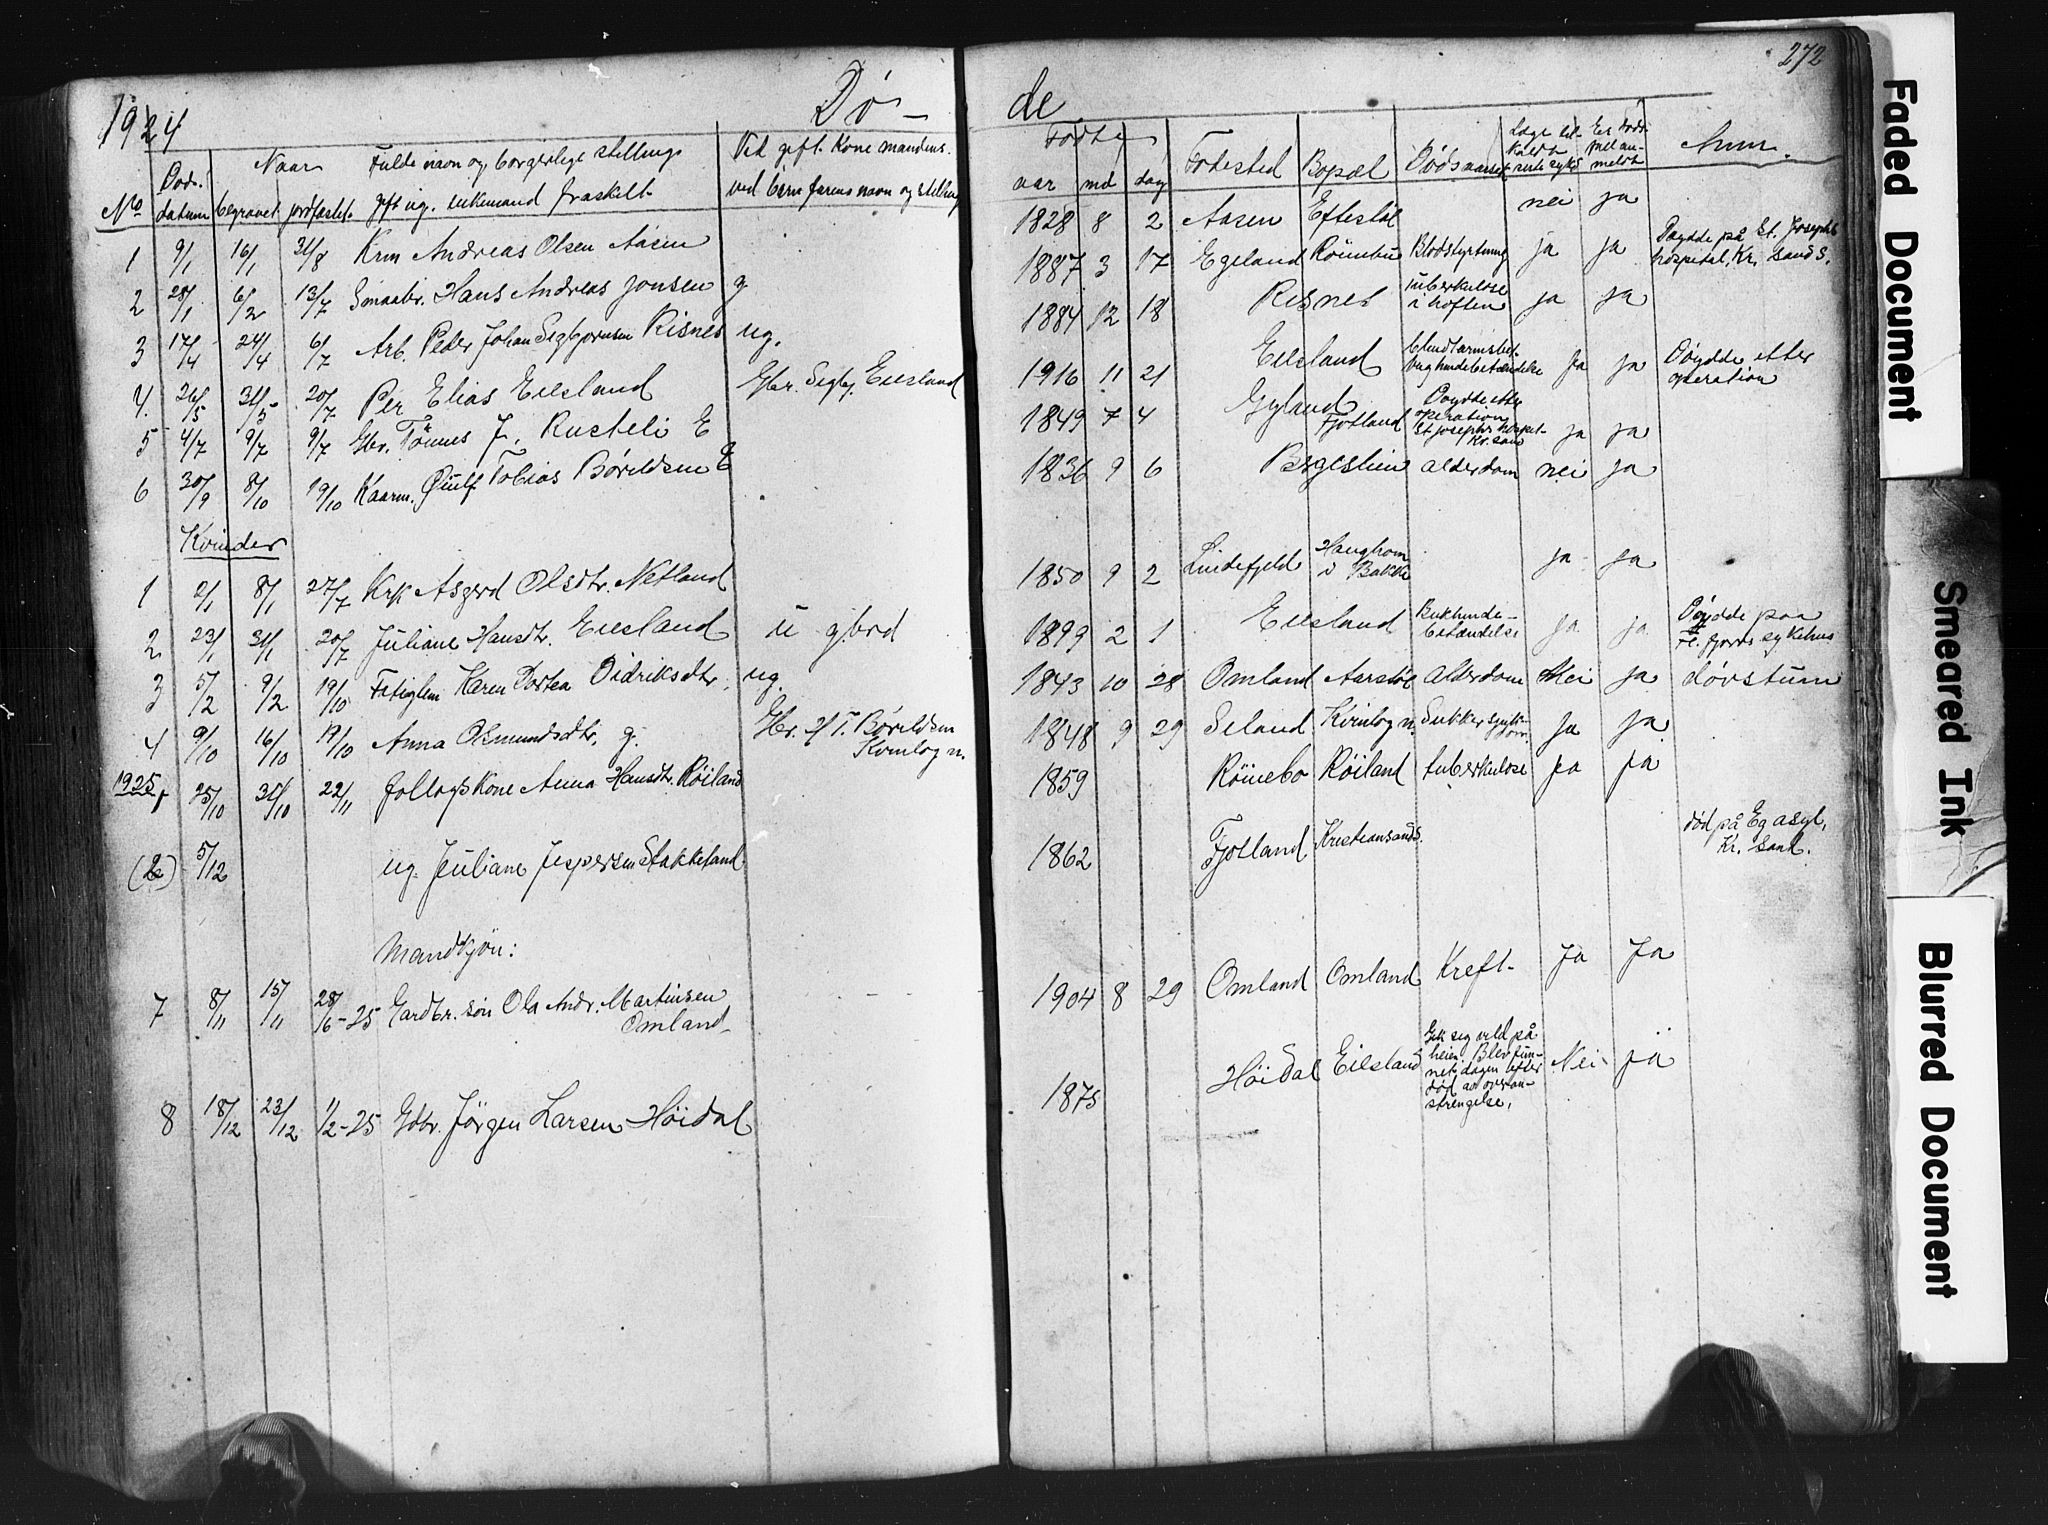 272
1924
Dø-
de
No
Døds. datum
Naar
begravet
jordfæstet
Fulde navn og borgerlige stilling
gift ug. enkemand fraskilt
Ved gift. Kone mandens.
ved børn farens navn og stilling
Fødte
aar md dag
Fødested
Bopæl
Dødsaarsak
Anm.
1 9/1 16/1 31/8 Krm Andreas Olsen Aasen 1828 8 2 Aasen Eftestøl nei ja
2 28/1 6/2 13/7 Smaabr. Hans Andreas Jonsen g 1887 3 17 Egeland Röinebu Blodstyrtning ja ja Døydde på St. Josephs
hospital, Kr. sand S.
3 17/4 24/4 6/7 Arb. Peder Johan Sigbjørnsen Risnes ug. 1884 12 18 Risnes tuberkulose
i hoften ja ja
4. 26/5 31/5 20/7 Per Elias Eilsland Gbr. Sigbj. Eilsland 1916 11 21 Eilsland
bukhindebetændelse ja ja Døydde etter
operation
5 4/7 9/7 9/7 Gbr. Tönnes J. Rusteli E 1849 7 4 Gyland Fjotland Døydde etter
operation
St josephs hospit-
Kr. sand ja ja
6 30/9 8/10 19/10 Kaarm. Tobias Børildsen E 1836 9 6 alderdom nei ja
Kvinder
1 2/1 8/1 27/7 Krk Asgerd Olsdtr. Netland 1850 9 2 Lindefjeld Haughom
i Bakke ja ja
2 23/1 31/1 20/7 Juliane Hansdtr. Eilsland u gbrd 1899 2 1 Eilsland Bukhinde-
betændelse ja ja Døydde paa
Fl. fjord sykehus
3 5/2 9/2 19/10 Fatiglem Karen Dortea Didriksdtr. ug. 1843 10 28 Omland Aarstøl Alderdom Nei ja døvstum
4 9/10 16/10 19/10 Anna Osmundsdtr. g. Gbr. T. Børildsen
Kvinlog n. 1848 9 29 Seland Kvinlog n. Sukkersyk-
dom. ja ja
1925, 25/10 31/10 22/11 follogskone Anna Hansdtr. Röiland 1859 Röinebo Röiland tuberkulose ja ja
(2) 5/12 ug. Juliane Jespersen Stakkeland 1862 Fjotland Kristiansand S. død på Eg asyl,
Kr. sand.
Mandkjön:
7 8/11 15/11 28/6-25 Gardbr. sön Ola Andr. Martinsen
Omland 1904 8 29 Omland Omland Kreft- Ja Ja
8 18/12 23/12 1/2-25 Gdbr. Jörgen Larsen Höidal 1875 Höidal Eilsland Gik sig vild på
heien. Blev fun-
net dagen efter
død av overan-
strengelse. Nei ja
Faded Document
Smeared Ink
Blurred Document